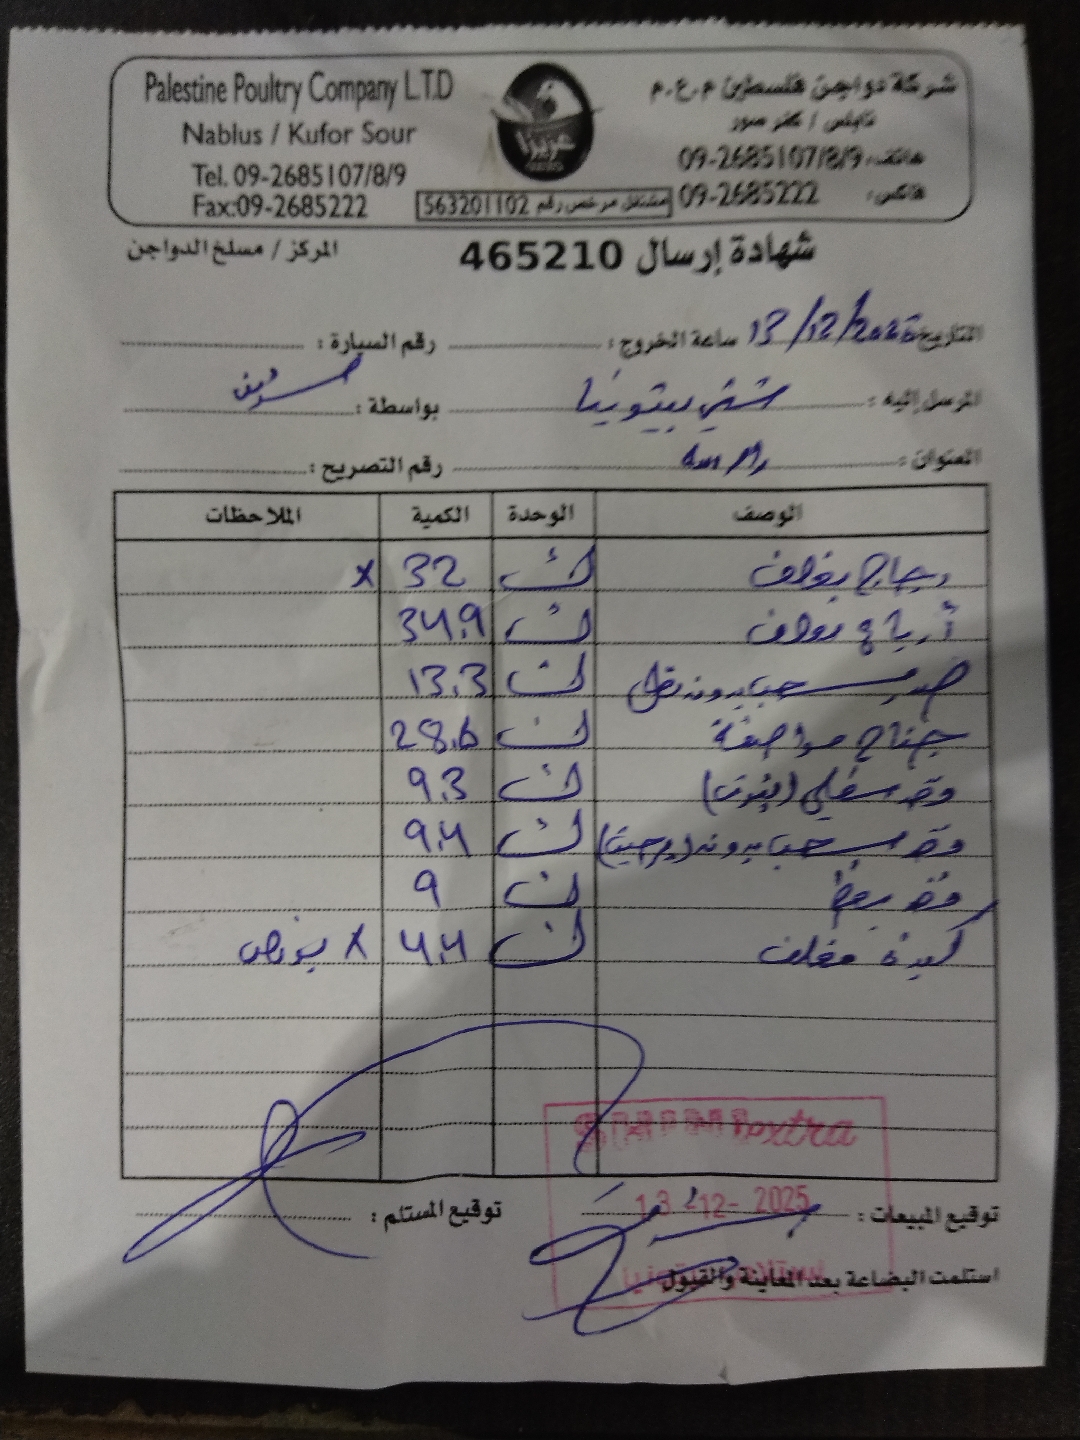 Palestine Poultry Company L.T.D
Nablus / Kufor Sour
Tel. 09-2685107/8/9
Fax:09-2685222
عزيزا
شركة دواجن فلسطين م.ع.م
نابلس / كفر صور
هاتف: 09-2685107/8/9
فاكس: 09-2685222
مشتغل مرخص رقم 563201102
شهادة إرسال 465210
المركز / مسلخ الدواجن
التاريخ: 13/12/2025 ساعة الخروج: رقم السيارة:
المرسل إليه: شني بيتونيا بواسطة:
العنوان: رام الله رقم التصريح:
الوصف الوحدة الكمية الملاحظات
دجاج مغلف ك 32 x
أرباع مغلف ك 34.9
صدر سحاب بدون ك 13.3
جناح مواصفة ك 28.6
سفلي ك 9.3
سحاب بدون ك 9.4
ك 9
كبدة مغلف ك 4.4 x
extra
توقيع المبيعات: توقيع المستلم:
13 -12- 2025
استلمت البضاعة بعد المعاينة والقبول
بيتونيا